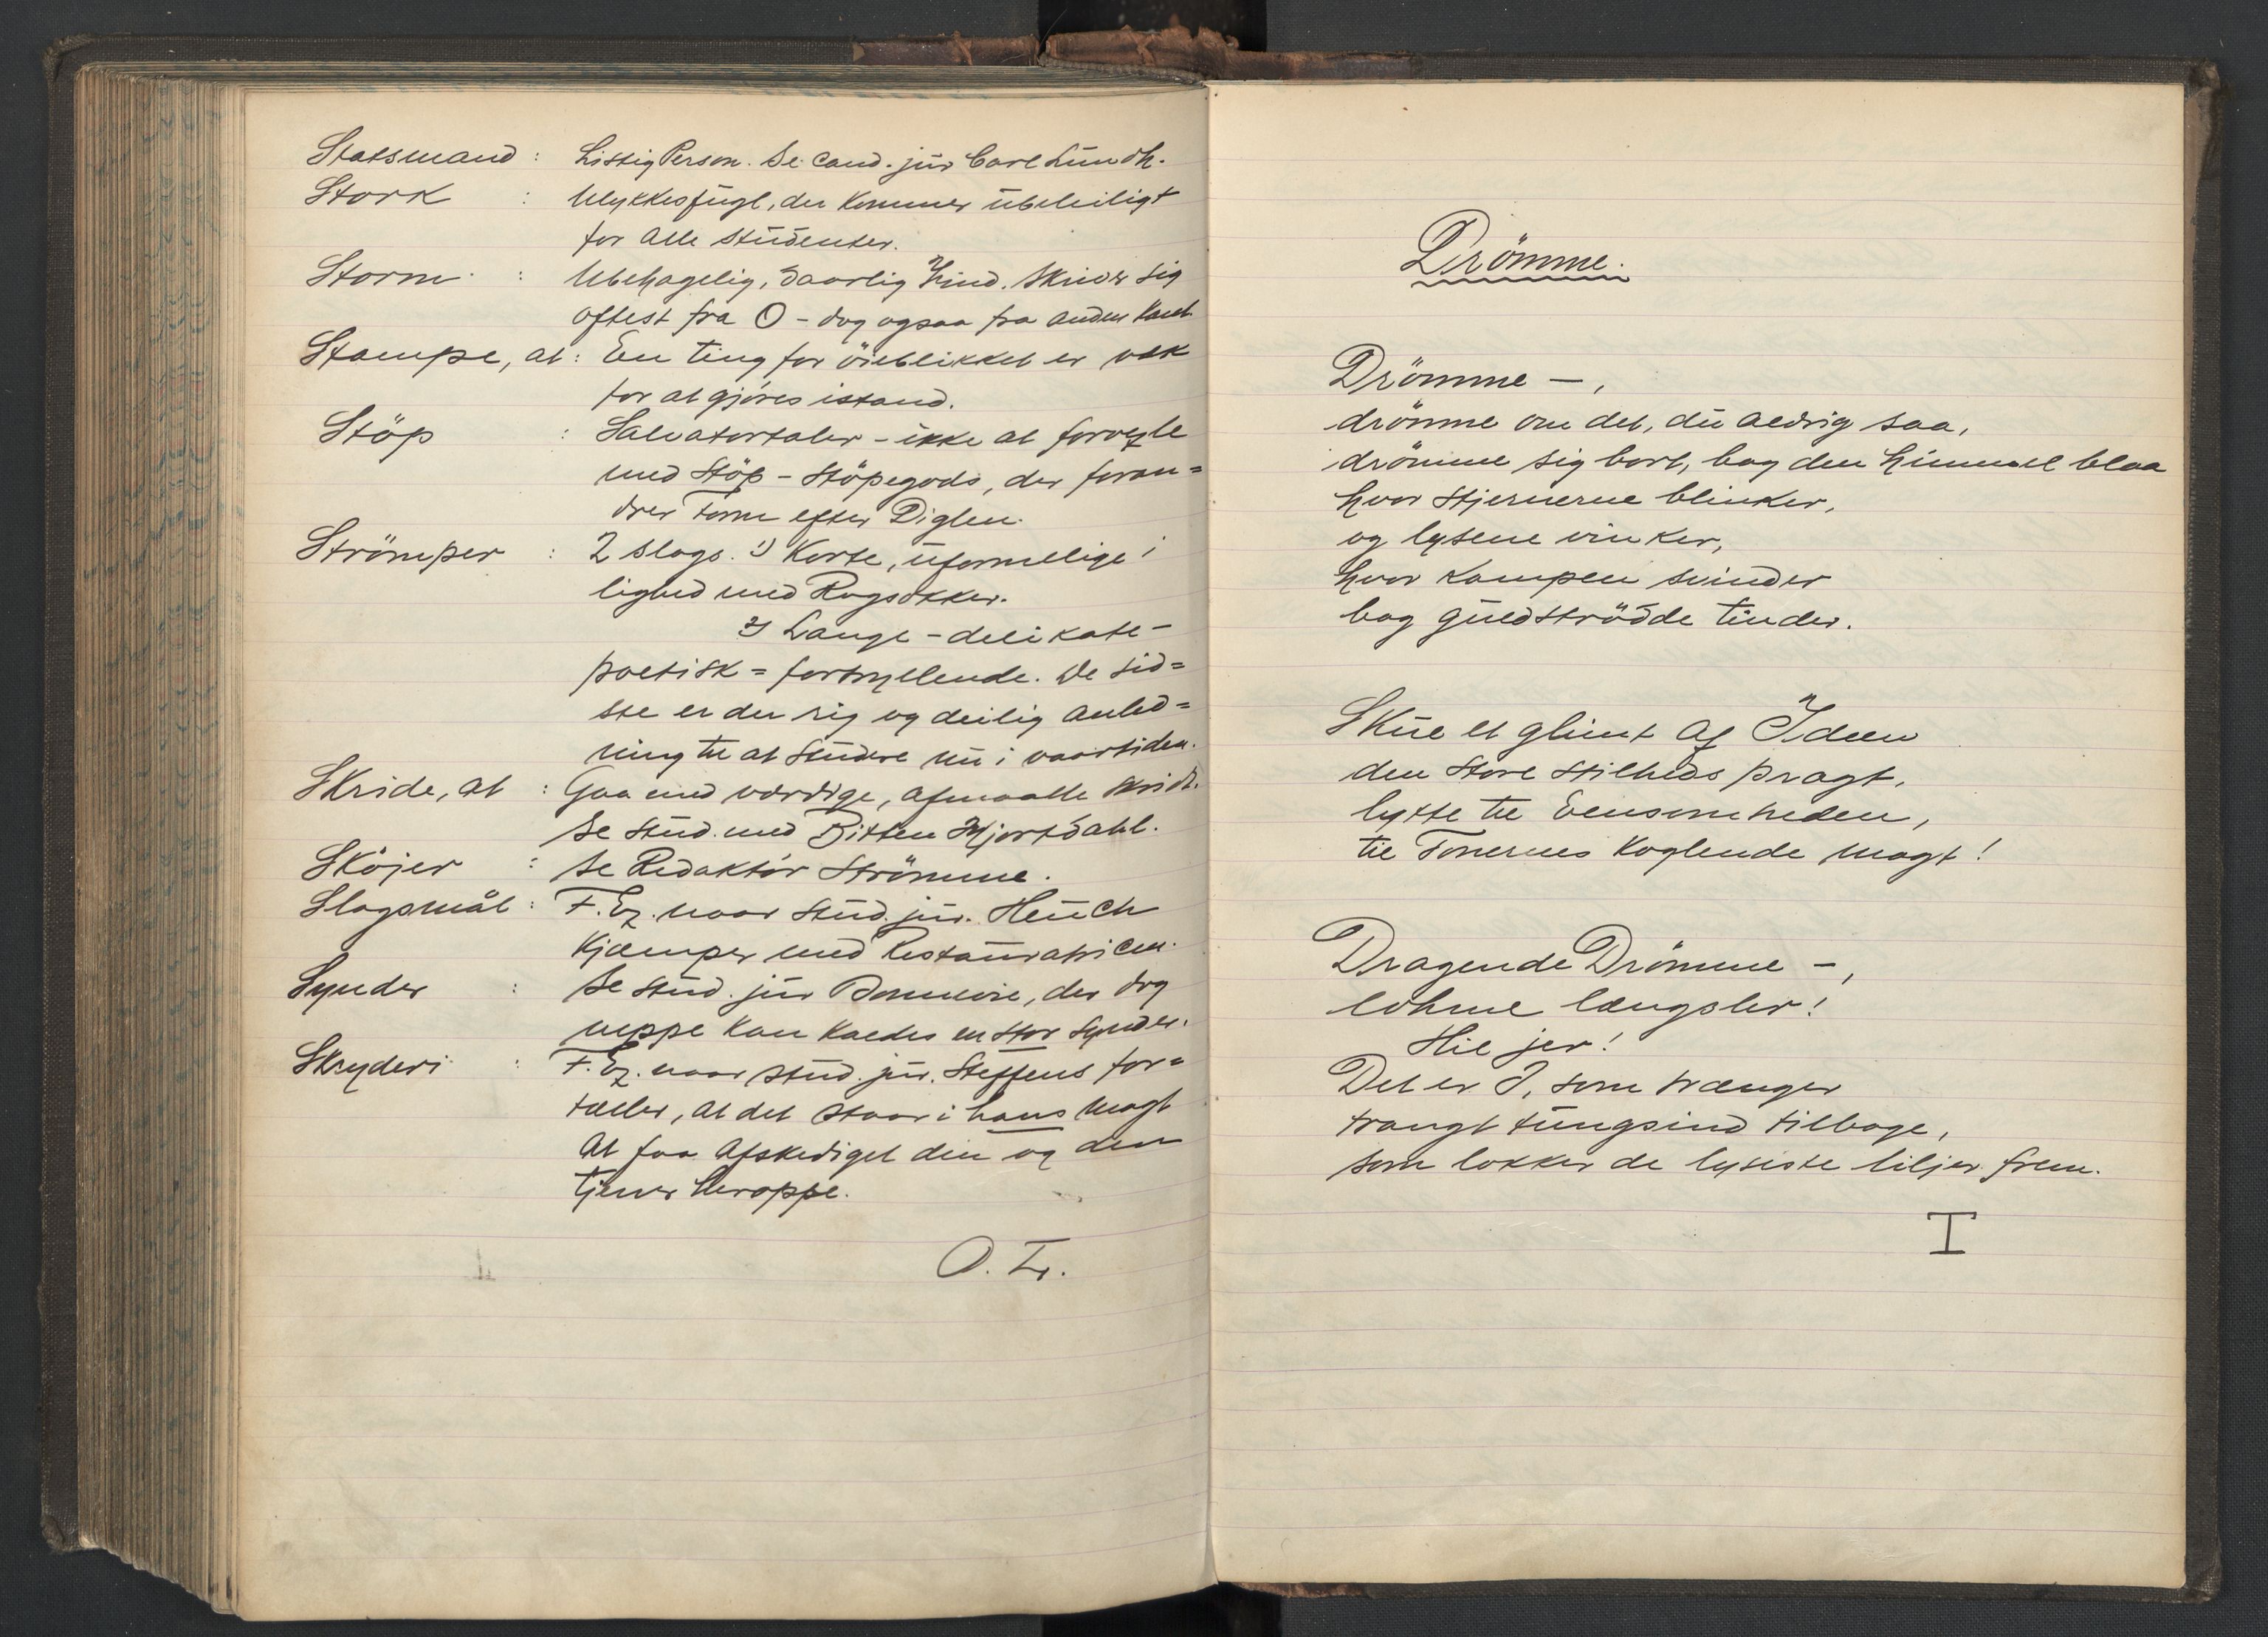 Statsmand : Listig Person. Se cand. jur Carl Lundh.
Stork : Ulykkesfugl, der kommer ubeleiligt
for alle studenter.
Storm : Ubehagelig, daarlig Vind. Skriver sig
oftest fra O - dog ogsaa fra anden Kant
Stampe, at : En ting for öieblikket er væk
for at gjöres istand.
Stöp : Salvatortaler - ikke at forvexle
med Stöp - Stöpegods, der foran=
drer Form efter Diglen.
Strömper : 2 slags. 1) Korte, uformelige i
lighed med Ragsokker.
2) Lange - delikate -
poetisk = fortryllende. De sid=
ste er der rig og deilig anled=
ning til at studere nu i vaartiden.
Skride, at : Gaa med værdige, afmaalte skridt.
Se stud. med Bitten Hjortdahl.
Sköjer : Se Redaktör Strömme.
Slagsmål : F. Ex. naar stud. jur. Heuch
kjæmper med Restauratricen.
Synder : Se stud. jur , der dog
neppe kan kaldes en stor synder.
Skryderi : F. Ex. naar stud. jur. Steffens for=
tæller, at det staar i hans magt
at faa afskediget den og den
tjener heroppe.
O. Tr.
Drömme.
Drömme —,
drömme om det, du aldrig saa,
drömme sig bort, bag den himmel blaa
hvor stjernerne blinker,
og lysene vinker,
hvor kampen svinder
bag guldströdde tinder.
Skue et glimt af Ideen
den store stilheds pragt,
lytte til Eensomheden,
til Tonernes koglende magt!
Dragende Drömme —,
lohme længsler!
Hil jer!
Det er I, som trænger
trangt tungsind tilbage,
som lokker de lyseste liljer frem.
I